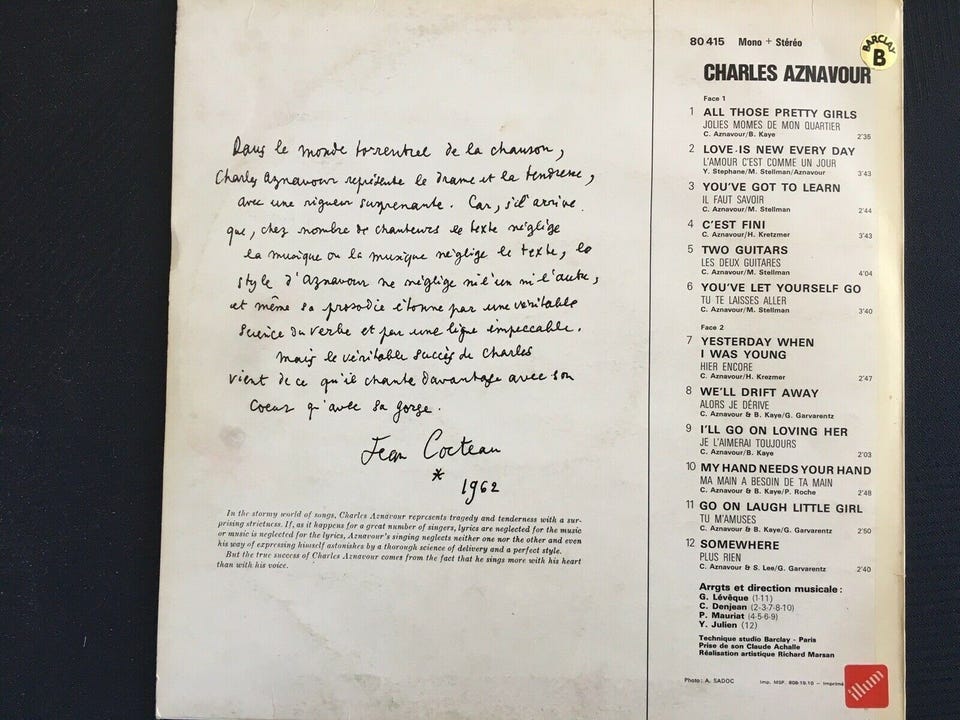 Dans le monde torrentiel de la chanson,
Charles Aznavour représente le drame et la tendresse,
avec une rigueur surprenante. Car, s'il arrive
que, chez nombre de chanteurs le texte néglige
la musique ou la musique néglige le texte, le
style d'Aznavour ne néglige ni l'un ni l'autre,
et même sa prosodie étonne par une véritable
science du verbe et par une ligne impeccable.
Mais le véritable succès de Charles
vient de ce qu'il chante davantage avec son
coeur qu'avec sa gorge.
Jean Cocteau
*
1962
In the stormy world of songs, Charles Aznavour represents tragedy and tenderness with a sur-
prising strictness. If, as it happens for a great number of singers, lyrics are neglected for the music
or music is neglected for the lyrics, Aznavour's singing neglects neither one nor the other and even
his way of expressing himself astonishes by a thorough science of delivery and a perfect style.
But the true success of Charles Aznavour comes from the fact that he sings more with his heart
than with his voice.
80 415 Mono + Stéréo
BARCLAY
B
CHARLES AZNAVOUR
Face 1
1 ALL THOSE PRETTY GIRLS
JOLIES MOMES DE MON QUARTIER
C. Aznavour/B. Kaye 2'35
2 LOVE IS NEW EVERY DAY
L'AMOUR C'EST COMME UN JOUR
Y. Stephane/M. Stellman/Aznavour 3'43
3 YOU'VE GOT TO LEARN
IL FAUT SAVOIR
C. Aznavour/M. Stellman 2'44
4 C'EST FINI
C. Aznavour/H. Kretzmer 3'43
5 TWO GUITARS
LES DEUX GUITARES
C. Aznavour/M. Stellman 4'04
6 YOU'VE LET YOURSELF GO
TU TE LAISSES ALLER
C. Aznavour/M. Stellman 3'40
Face 2
7 YESTERDAY WHEN
I WAS YOUNG
HIER ENCORE
C. Aznavour/H. Krezmer 2'47
8 WE'LL DRIFT AWAY
ALORS JE DÉRIVE
C. Aznavour & B. Kaye/G. Garvarentz
9 I'LL GO ON LOVING HER
JE L'AIMERAI TOUJOURS
C. Aznavour/B. Kaye 2'03
10 MY HAND NEEDS YOUR HAND
MA MAIN A BESOIN DE TA MAIN
C. Aznavour & B. Kaye/P. Roche 2'48
11 GO ON LAUGH LITTLE GIRL
TU M'AMUSES
C. Aznavour & B. Kaye/G. Garvarentz 2'50
12 SOMEWHERE
PLUS RIEN
C. Aznavour & S. Lee/G. Garvarentz 2'40
Arrgts et direction musicale :
G. Lévêque (1-11)
C. Denjean (2-3-7-8-10)
P. Mauriat (4-5-6-9)
Y. Julien (12)
Technique studio Barclay - Paris
Prise de son Claude Achalle
Réalisation artistique Richard Marsan
Photo : A. SADOC Imp. MSP. 808-19.10 - Imprimé
illum